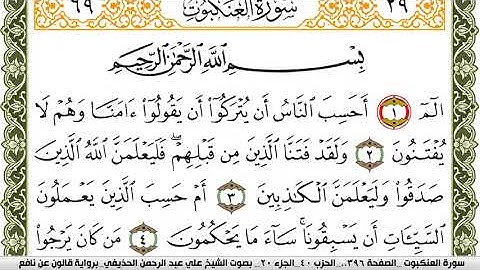 ٢٩ سُورَةُ الْعَنكَبُوتِ ٦٩
بِسْمِ اللَّهِ الرَّحْمَٰنِ الرَّحِيمِ
الٓمٓ ١ أَحَسِبَ النَّاسُ أَن يُتْرَكُوٓا۟ أَن يَقُولُوٓا۟ ءَامَنَّا وَهُمْ لَا
يُفْتَنُونَ ٢ وَلَقَدْ فَتَنَّا الَّذِينَ مِن قَبْلِهِمْ ۖ فَلَيَعْلَمَنَّ اللَّهُ الَّذِينَ
صَدَقُوا۟ وَلَيَعْلَمَنَّ الْكَٰذِبِينَ ٣ أَمْ حَسِبَ الَّذِينَ يَعْمَلُونَ
السَّيِّـَٔاتِ أَن يَسْبِقُونَا ۚ سَآءَ مَا يَحْكُمُونَ ٤ مَن كَانَ يَرْجُوا۟
سورة العنكبوت_ الصفحة ٣٩٦.. الحزب ٤٠_ الجزء ٢٠_ بصوت الشيخ علي عبد الرحمن الحذيفي_ برواية قالون عن نافع